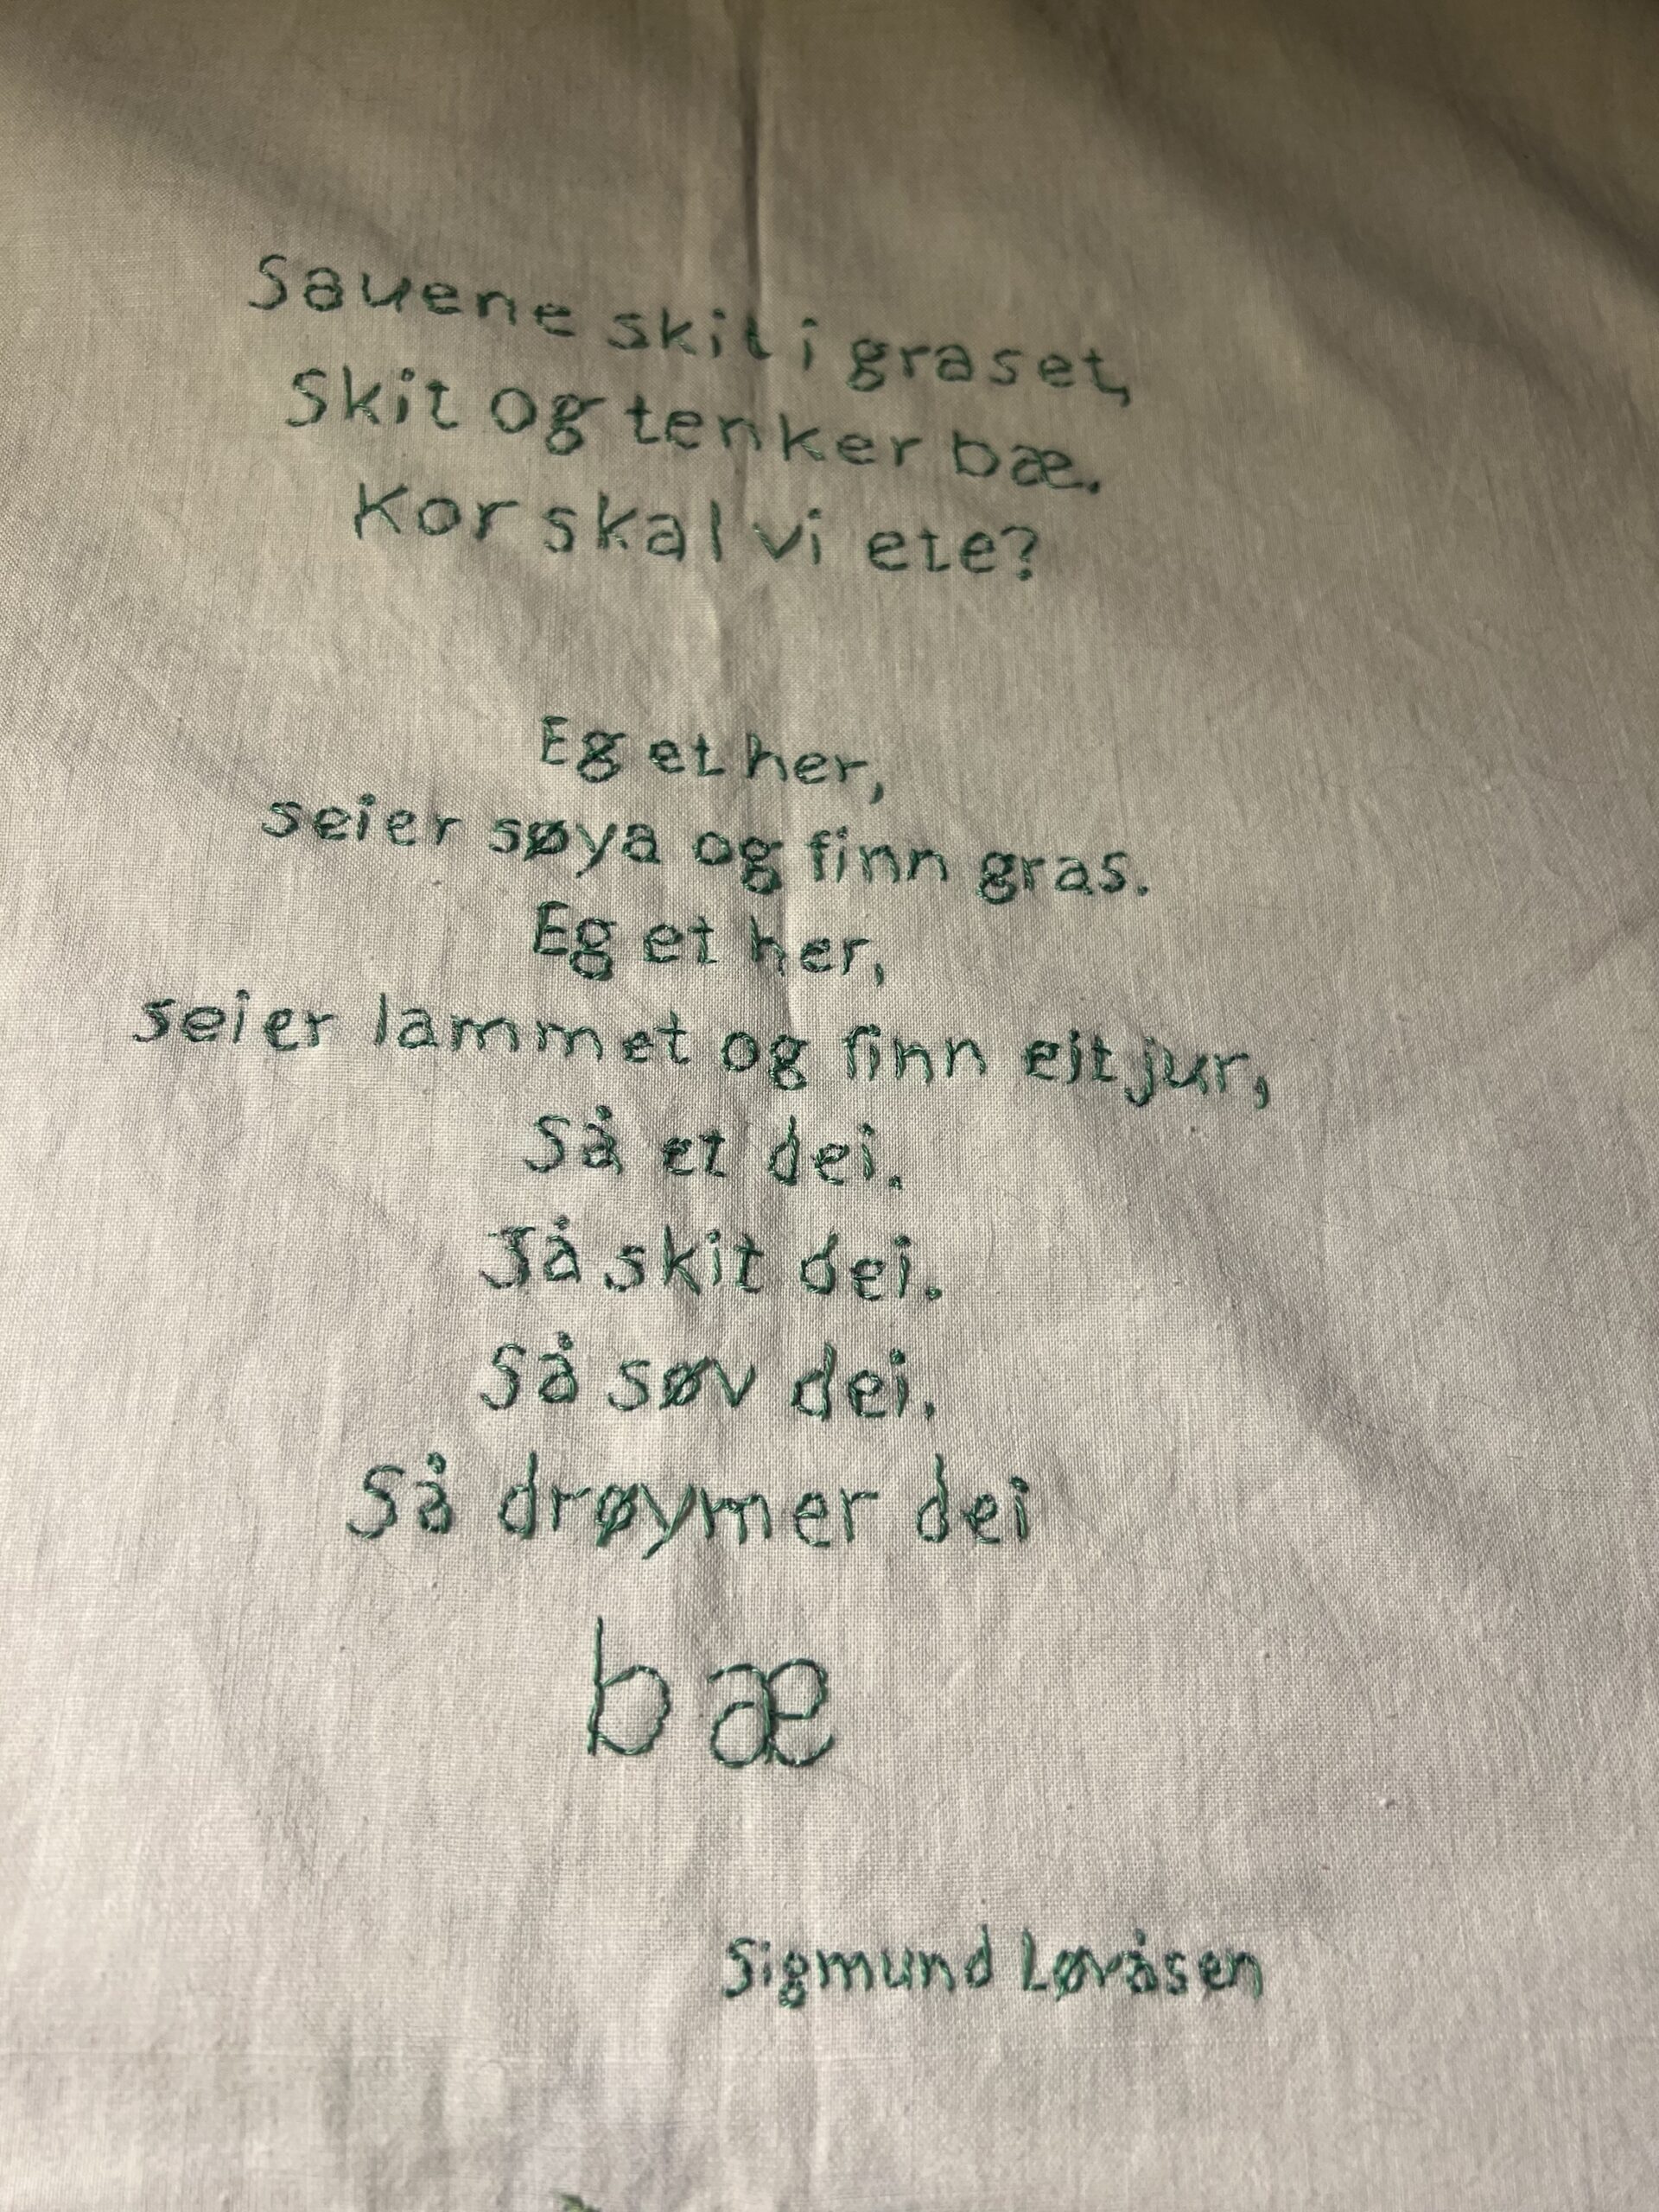 Sauene skit i graset,
Skit og tenker bæ.
Kor skal vi ete?
Eg et her,
seier søya og finn gras.
Eg et her,
seier lammet og finn eit jur,
Så et dei.
Så skit dei.
Så søv dei.
Så drøymer dei
bæ
Sigmund Løvåsen